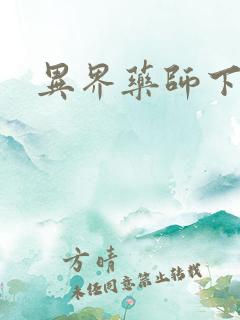 異界藥師下
方晴
未经同意禁止转载